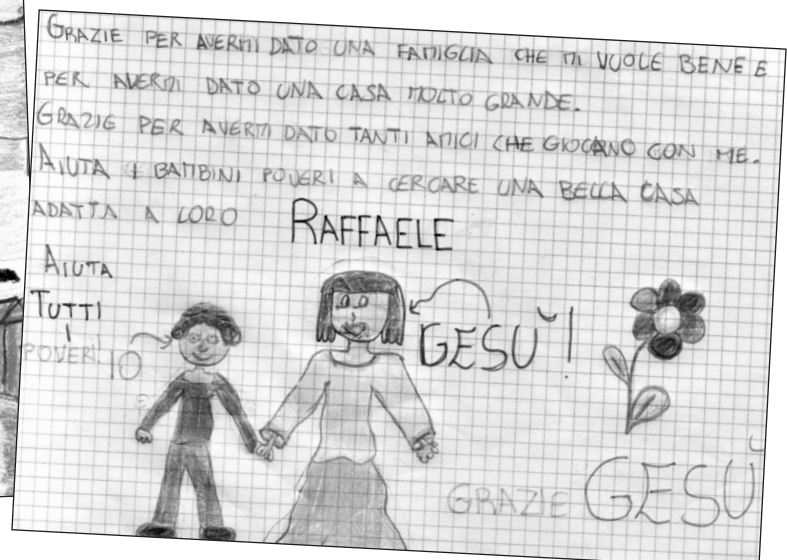 GRAZIE PER AVERMI DATO UNA FAMIGLIA CHE MI VUOLE BENE E
PER AVERMI DATO UNA CASA MOLTO GRANDE.
GRAZIE PER AVERMI DATO TANTI AMICI CHE GIOCANO CON ME.
AIUTA I BAMBINI POVERI A CERCARE UNA BELLA CASA
ADATTA A LORO
RAFFAELE
AIUTA
TUTTI
I
POVERI!
IO
GESÙ!
GRAZIE GESÙ